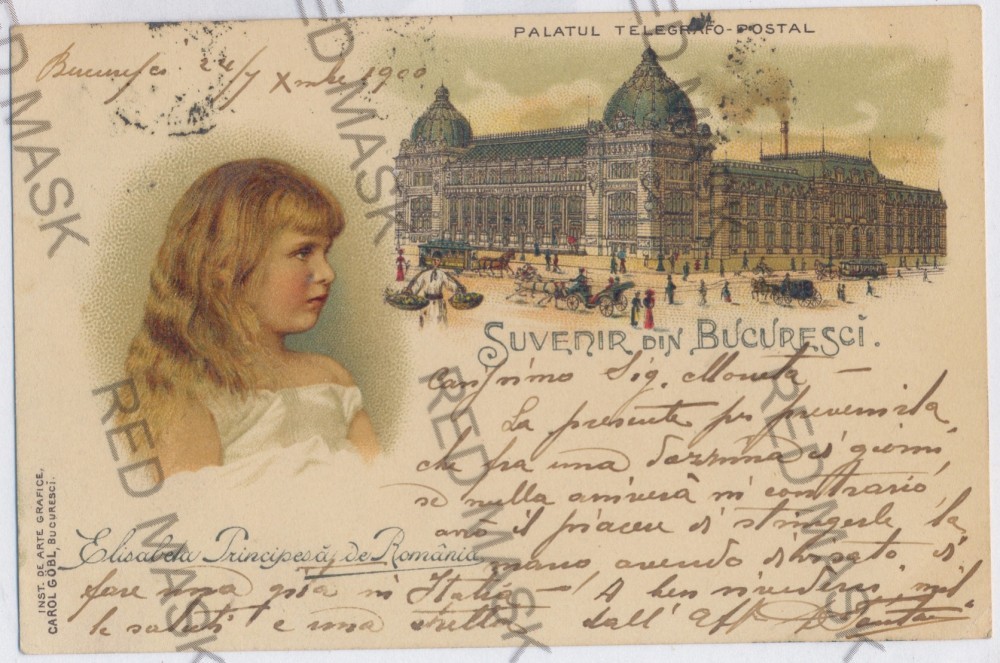 PALATUL TELEGRAFO-POSTAL
Bucuresci 24/7 Xmbre 1900
SUVENIR DIN BUCURESCI.
Carissimo Sig. Moneta —
La presente per prevenirla,
che fra una dozzina di giorni,
se nulla arriverà in contrario,
avrò il piacere di stringerle la
mano avendo divisato di
Elisabeta Principesă de România
fare una gita in Italia — A ben rivederci, mille
saluti e una stretta dall' Aff
INST. DE ARTE GRAFICE,
CAROL GÖBL, BUCURESCI.
RED MASK
RED MASK
RED MASK
RED MASK
RED MASK
RED MASK